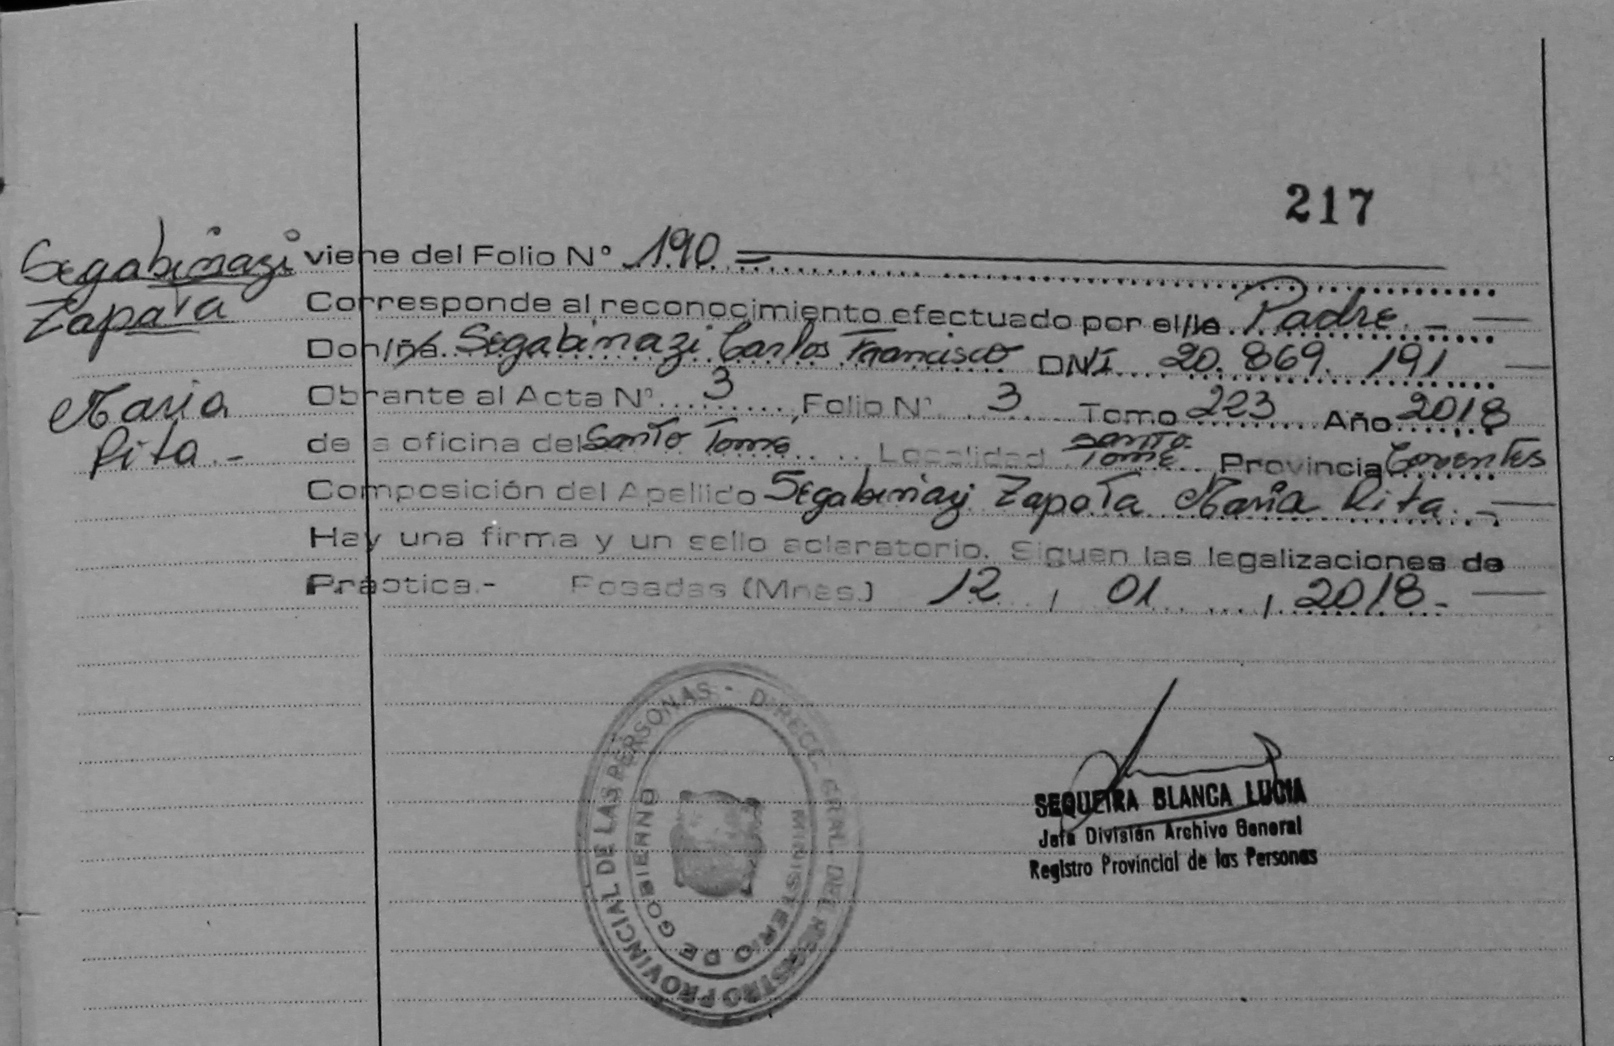 217
Segabinazi
Zapata
María
Rita.-
viene del Folio N° 190 =
Corresponde al reconocimiento efectuado por el/la Padre. -
Don/ña. Segabinazi Carlos Francisco DNI 20.869.191
Obrante al Acta N° 3, Folio N° 3 Tomo 223 Año 2018
de la oficina del Santo Tomé Localidad Santo Tomé Provincia Corrientes
Composición del Apellido Segabinazi Zapata María Rita.-
Hay una firma y un sello aclaratorio. Siguen las legalizaciones de
Práctica.- Posadas (Mnes.) 12, 01, 2018.-
DIRECC. GRAL. DEL REGISTRO PROVINCIAL DE LAS PERSONAS -
MINISTERIO DE GOBIERNO
SEQUEIRA BLANCA LUCIA
Jefa División Archivo General
Registro Provincial de las Personas